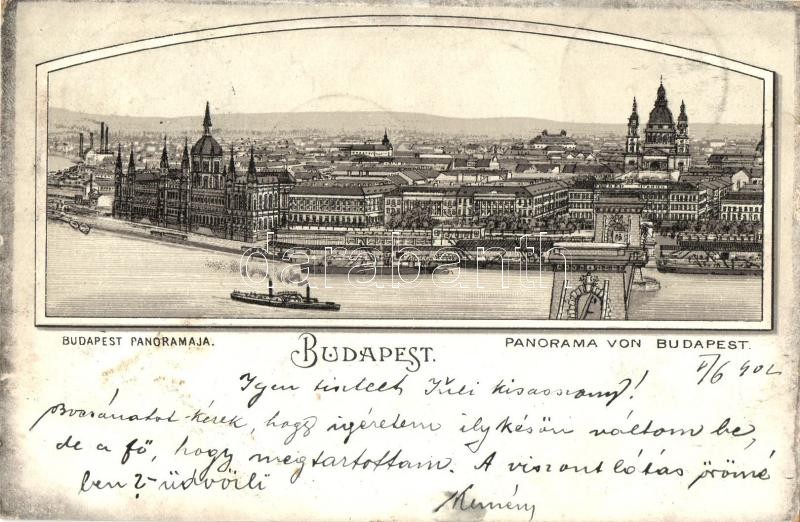 darabanth
BUDAPEST PANORAMAJA.
BUDAPEST.
PANORAMA VON BUDAPEST.
V/6 902
Igen tisztelt Juli kisasszony!
Bocsánatot kérek, hogy igéretem ilykésőn váltom be,
de a fő, hogy megtartottam. A viszontlátás örömé
ben üdvözli
Kemény